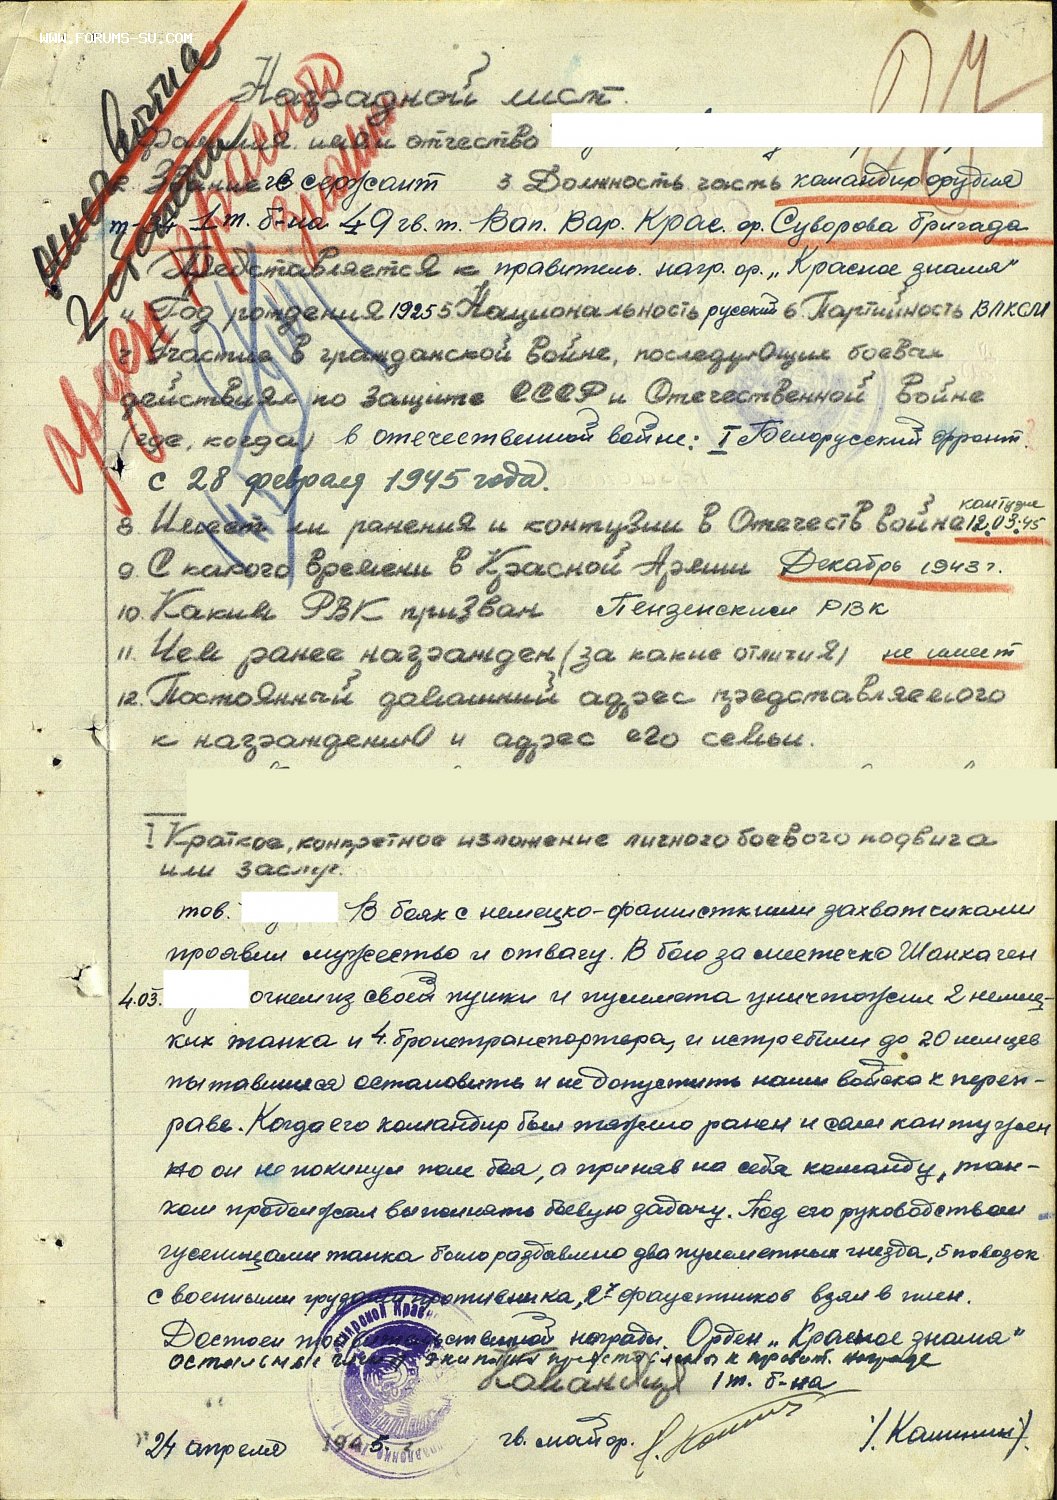 WWW.FORUMS-SU.COM
Наградной лист.
Фамилия имя и отчество
2. Звание гв сержант 3. Должность часть командир орудия
т-34 1 т. б-на 49 гв. т. Вап. Вар. Крас. ор. Суворова бригада
Представляется к правитель. нагр. ор. „Красное знамя"
4. Год рождения 1925 5 Национальность русский 6. Партийность ВЛКСМ
7. Участие в гражданской войне, последующих боевых
действиях по защите СССР и Отечественной войне
(где, когда) в отечественной войне: I Белорусский фронт.
с 28 февраля 1945 года.
8. Имеет ли ранения и контузии в Отечеств войне контузия 12.03.45
9. С какого времени в Красной Армии Декабрь 1943 г.
10. Каким РВК призван Пензенским РВК
11. Чем ранее награжден (за какие отличия) не имеет
12. Постоянный домашний адрес представляемого
к награждению и адрес его семьи.
I Краткое, конкретное изложение личного боевого подвига
или заслуг.
тов. В боях с немецко-фашисткими захватчиками
проявил мужество и отвагу. В бою за местечко Шанхаген
4.03. огнем из своей пушки и пулемета уничтожил 2 немец-
ких танка и 4 бронетранспортера, и истребили до 20 немцев
пытавшихся остановить и не допустить наши войска к переп-
раве. Когда его командир был тяжело ранен и сам контужен
но он не покинул поле боя, а приняв на себя команду, тан-
ком продолжал выполнять боевую задачу. Под его руководством
гусеницами танка было раздавлено два пулеметных гнезда, 5 повозок
с военными грузами противника, 2х фаустников взял в плен.
Достоен правительственной награды. Орден „Красное знамя"
остальные члены экипажа представлены к правит. награде
Командир 1 т. б-на
24 апреля 1945 г. гв. майор. /Калинин/
орден Красной звезды
2 степени